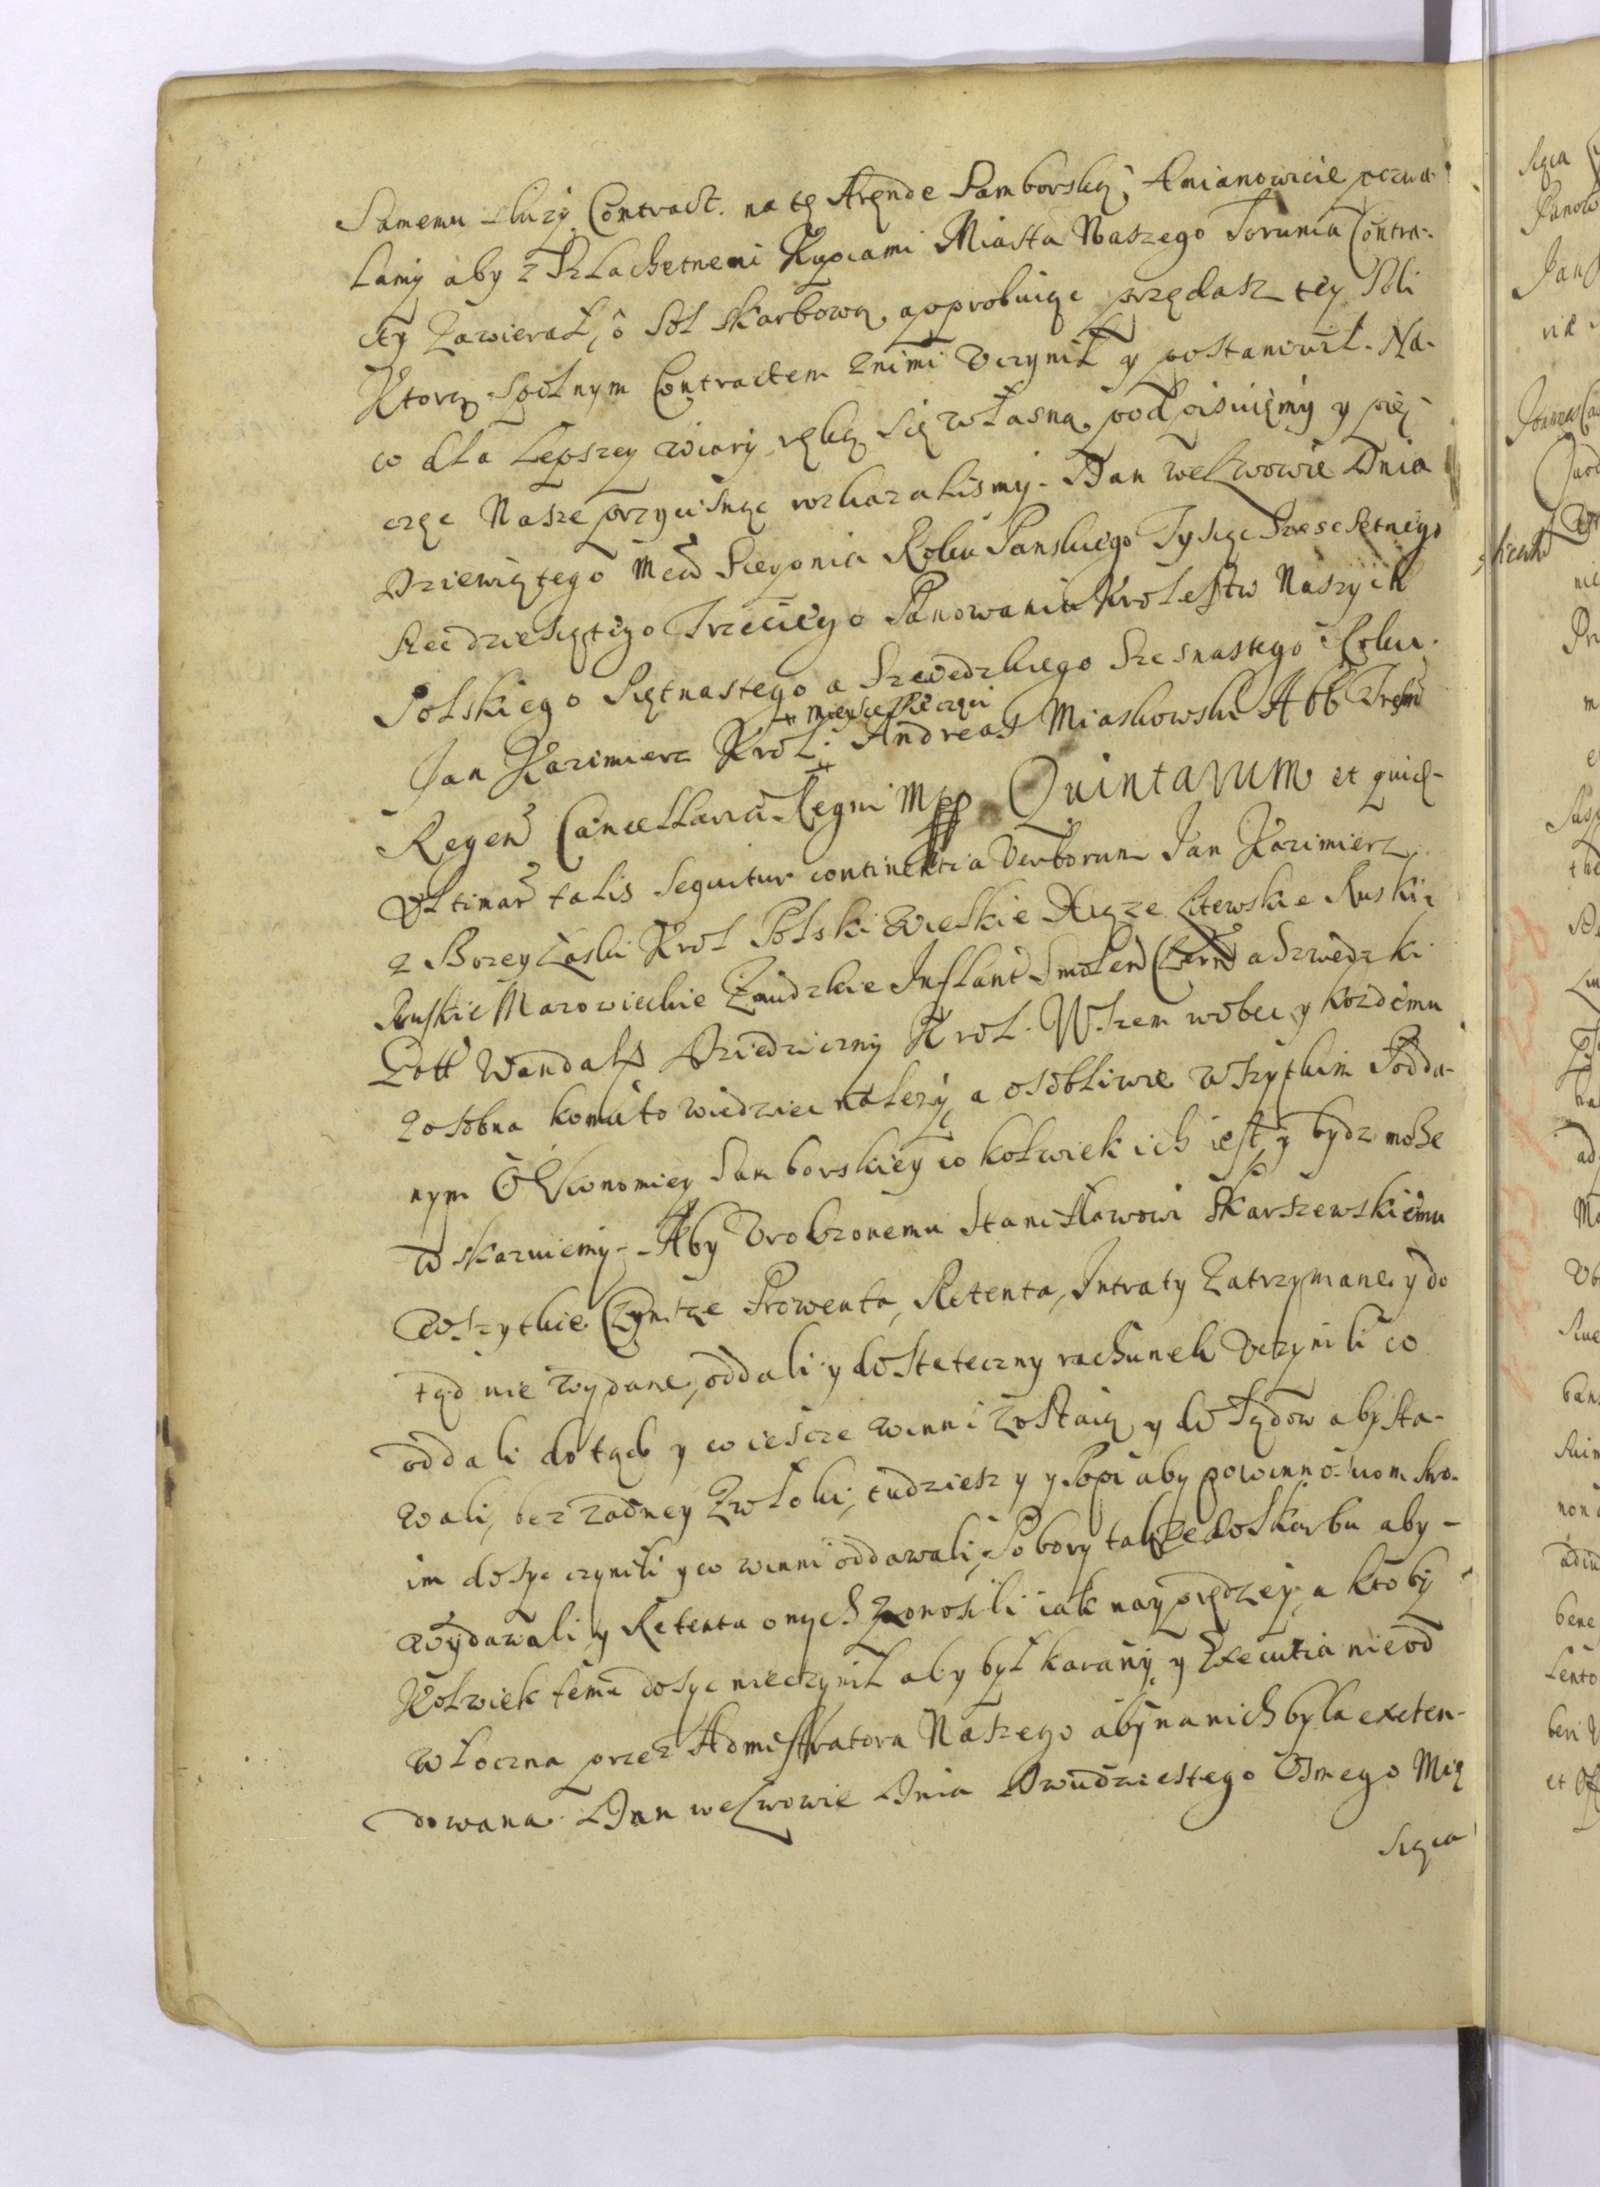 Samemu służy Contract. na tę Arędę Samborską, Amianowicie pozwa-
lamy aby z Szlachetnemi Kupcami Miasta Naszego Torunia Contra-
cty zawierał, o Sol Skarbową, approbuiąc przedasz tey Soli
Ktorą Spolnym Contractem z nimi Uczynił y postanowił. Na-
co dla Lepszey wiary ręką się własną podpisuięmy y pię-
częc Nasze przycisnąc rozkazalismy. Dan we Lwowie Dnia
Dziewiątego Mca Sierpnia Roku Panskiego Tysiąc Szescsetnego
Szescdziesiątego Trzeciego Panowania Krolestw Naszych
Polskiego Piętnastego a Szwedzkiego Szesnastego Roku.
+ Mieysce Pieczęci
Jan Kazimierz Krol. Andreas Miaskowski Abb Trem
Regen Cancellaria Regni Mpp. Quintarum et quid-
Ultimar talis sequitur continentia Verborum Jan Kazimierz
z Bozey Łaski Krol Polski Wielkie Xiąze Litewskie Ruskie
Pruskie Mazowieckie Zmudzkie Inflant Smolen Czern a Szwedzki
Gott Wandals Dziedziczny Krol. Wszem wobec y kozdemu
zosobna komu to wiedziec nalezy, a osobliwie wszytkim Podda-
nym Oekonomiey Samborskiey co kolwiek ich iest y bydz może
W skazuiemy. Aby Urodzonemu Stanisławowi Skarszewskiemu
Wszytkie Czynsze Prowenta, Retenta, Intraty Zatrzymane y do
tąd nie wydane, oddali y dostateczny rachunek Uczynili co
oddali dotąd y co iescze winni zostaią y do Sądow aby sta-
wali, bez zadney Zwłoki, tudziesz y y Popi aby powinnosciom swo-
im dosyc czynili y co winni oddawali, Pobory takze do Skarbu aby-
wydawali y Retenta onych znosili iak nayprędzey, a kto by
Kolwiek temu dosyc nieczynił aby był karany y Executia nieod
włoczna przez Admistratora Naszego aby na nich była exeten-
dowana. Dan we Lwowie Dnia Dwudziestego Osmego Mie
siąca